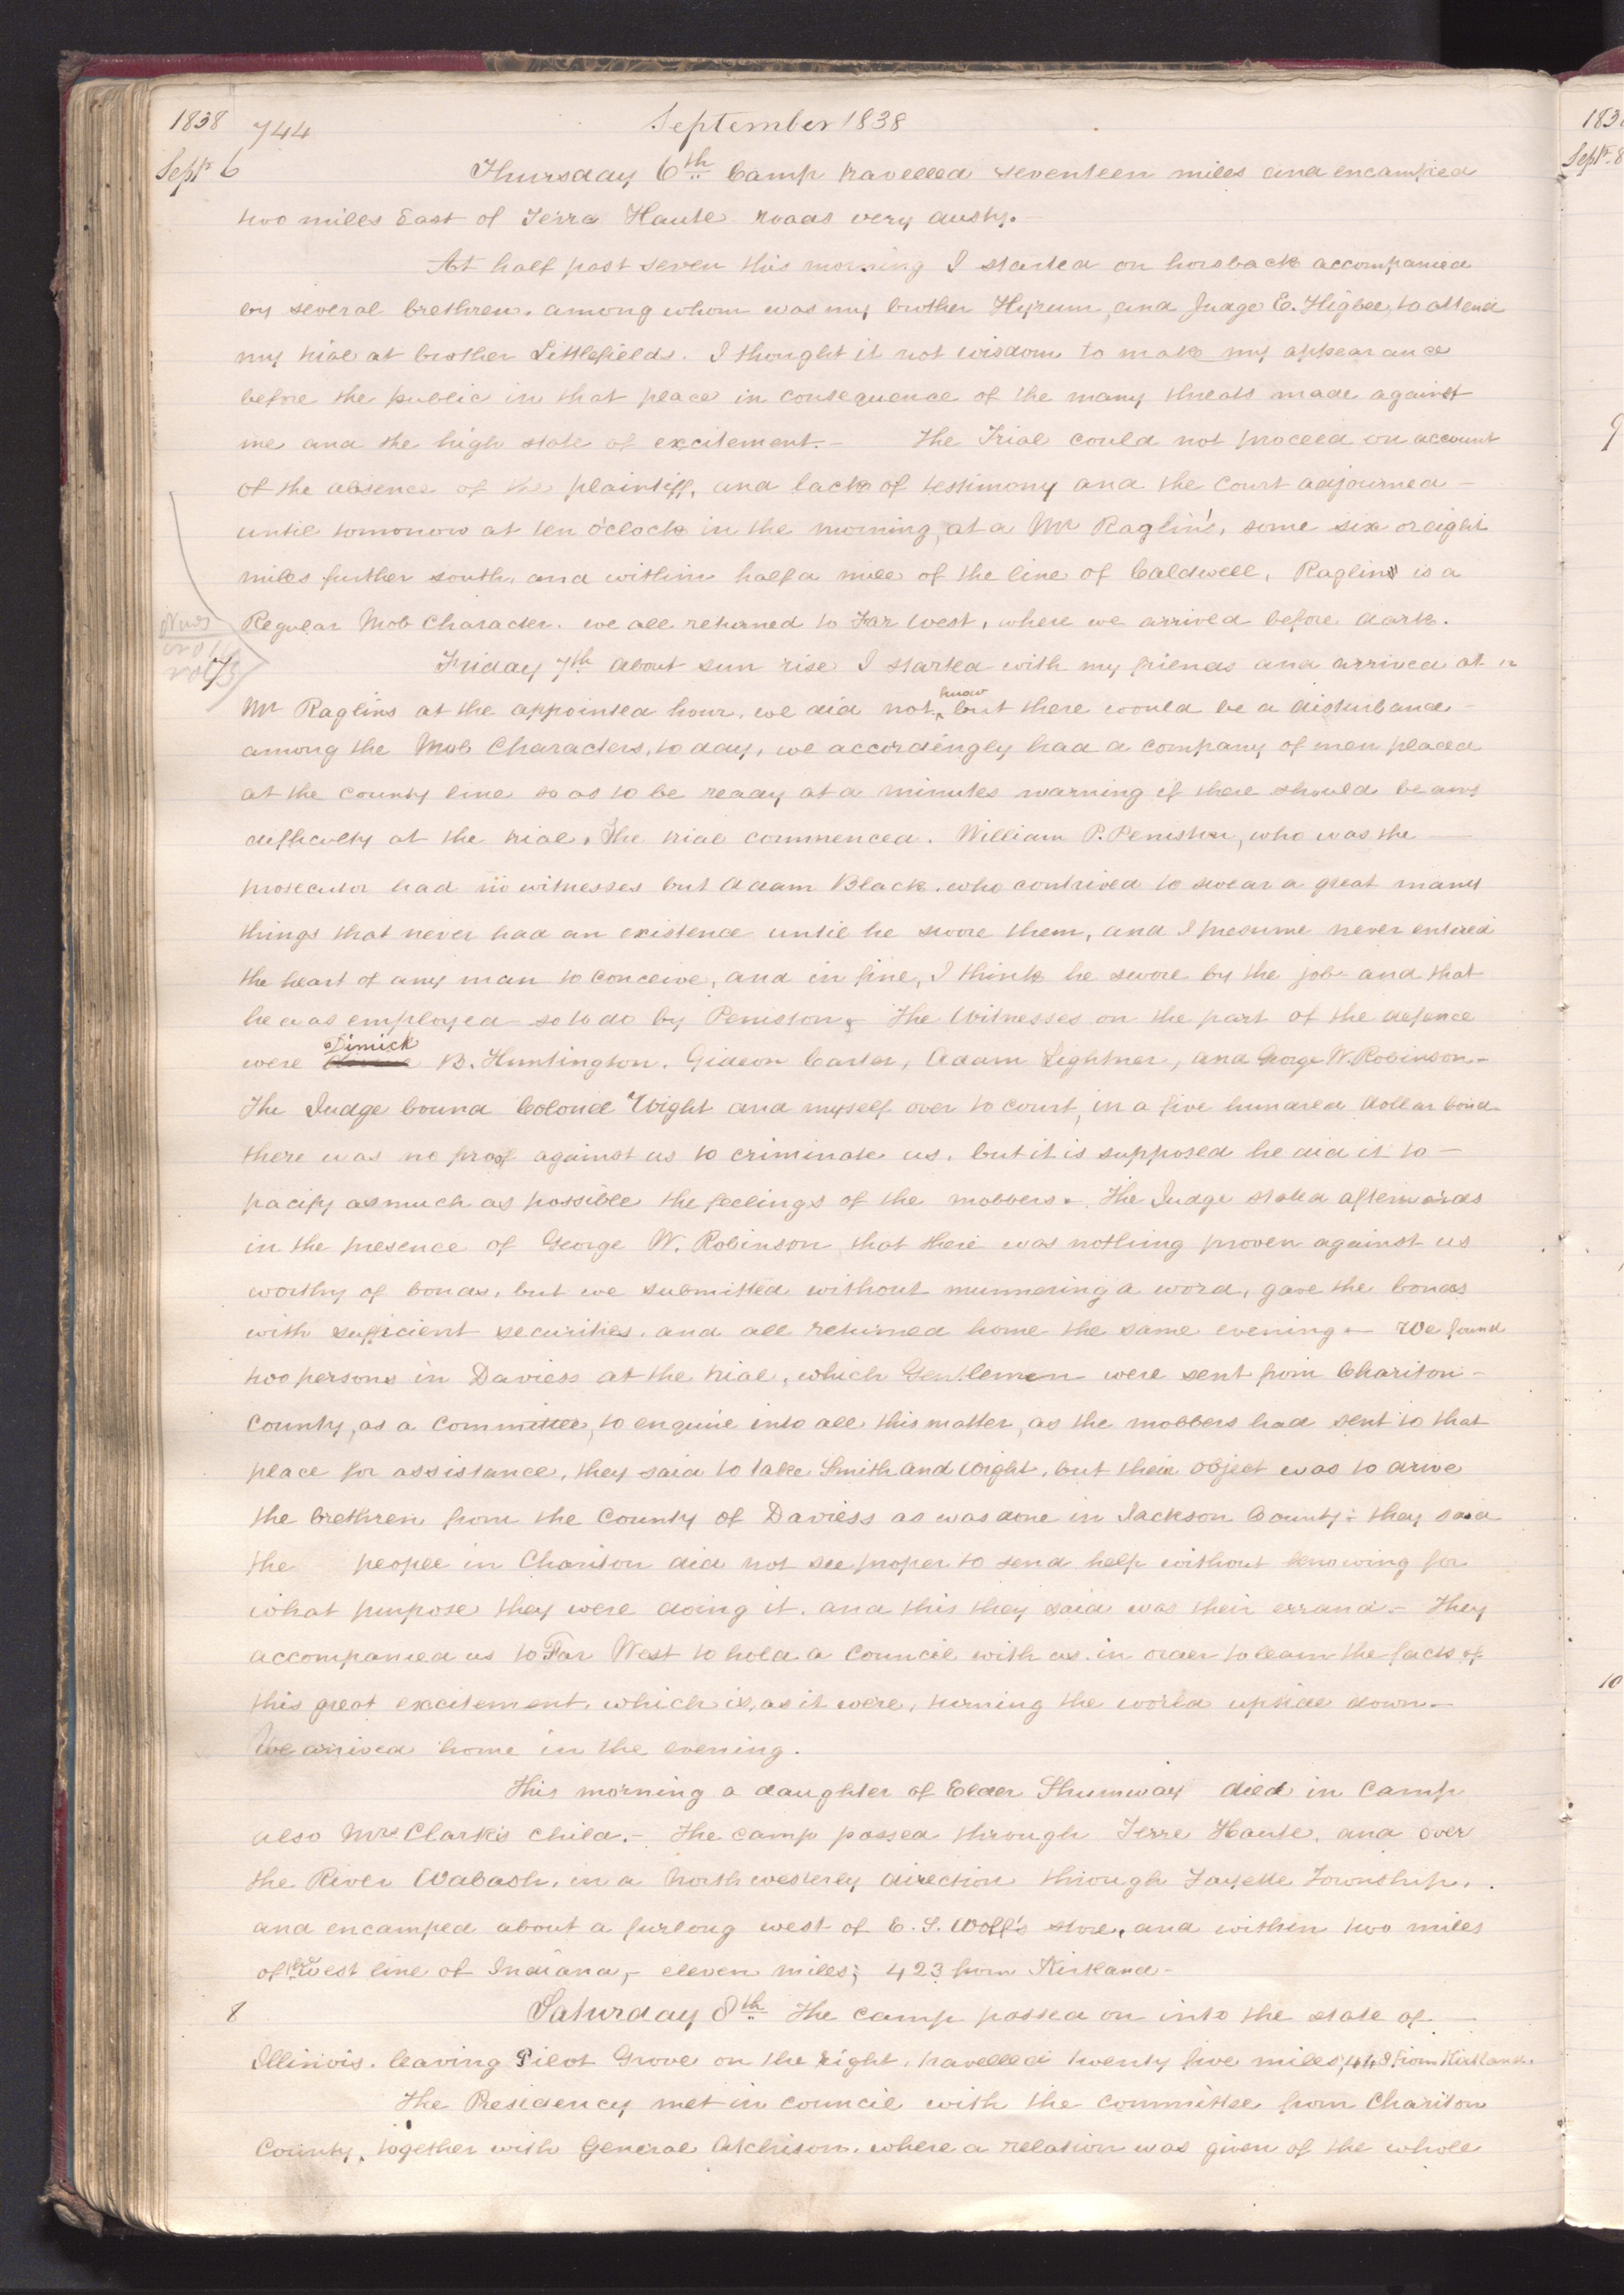 1838 744 September 1838
Sept. 6 Thursday 6th Camp travelled seventeen miles and encamped
two miles East of Terra Haute roads very dusty.
At half past seven this morning I started on horsback accompanied
by several brethren, among whom was my brother Hyrum, and Judge E. Higbee, to attend
my trial at brother Littlefields. I thought it not wisdom to make my appearance
before the public in that place in consequence of the many threats made against
me and the high state of excitement.- The Trial could not proceed on account
of the absence of the plaintiff, and lack of testimony and the Court adjourned -
until tomorrow at ten o'clock in the morning, at a Mr Raglin's, some six or eight
miles further south, and within half a mile of the line of Caldwell, Raglin is a
Regular Mob Character. we all returned to Far West, where we arrived before dark.
7 Friday 7th about sun rise I started with my friends and arrived at
Mr Raglins at the appointed hour, we did not know but there would be a disturbance -
among the Mob Characters, to day, we accordingly had a company of men placed
at the county line so as to be ready at a minutes warning if there should be any
difficulty at the trial, The trial commenced. William P. Peniston, who was the -
prosecutor had no witnesses but Adam Black, who contrived to swear a great many
things that never had an existence until he swore them, and I presume never entered
the heart of any man to conceive, and in fine, I think he swore by the job and that
he was employed so to do by Peniston, The Witnesses on the part of the defence
were Dimick B. Huntington, Gideon Carter, Adam Lightner, and George W. Robinson -
The Judge bound Colonel Wight and myself over to court, in a five hundred dollar bond
there was no proof against us to criminate us, but it is supposed he did it to -
pacify as much as possible the feelings of the mobbers. The Judge stated afterwards
in the presence of George W. Robinson that there was nothing proven against us
worthy of bonds, but we submitted without murmering a word, gave the bonds
with sufficient securities, and all returned home the same evening.- We found
two persons in Daviess at the trial, which Gentlemen were sent from Chariton -
County, as a Committee, to enquire into all this matter, as the mobbers had sent to that
place for assistance, they said to take Smith and Wight, but their object was to drive
the brethren from the County of Daviess as was done in Jackson County: they said
the people in Chariton did not see proper to send help without knowing for
what purpose they were doing it, and this they said was their errand.- They
accompanied us to Far West to hold a Council with us, in order to learn the facts of
this great excitement, which is, as it were, turning the world upside down.-
We arrived home in the evening.
This morning a daughter of Elder Shumway died in Camp
also Mrs Clark's child.- The camp passed through Terre Haute, and over
the River Wabash, in a North westerly direction through Fayette Township,
and encamped about a furlong west of E. S. Wolf's store, and within two miles
of the West line of Indiana,- eleven miles; 423 from Kirtland -
8 Saturday 8th The camp passed on into the state of -
Illinois, leaving Pilot Grove on the right, travelled twenty five miles; 448 from Kirtland.
The Presidency met in council with the committee from Chariton
County, together with General Atchison, where a relation was given of the whole
183
Sept. 8
9
10